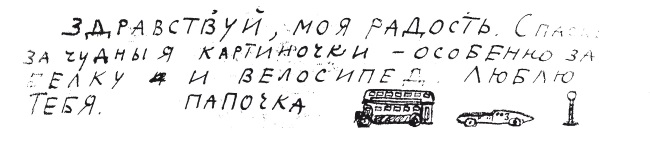 ЗДРАВСТВУЙ, МОЯ РАДОСТЬ. СПАСИБО
ЗА ЧУДНЫЯ КАРТИНОЧКИ – ОСОБЕННО ЗА
БЕЛКУ И ВЕЛОСИПЕД. ЛЮБЛЮ
ТЕБЯ. ПАПОЧКА